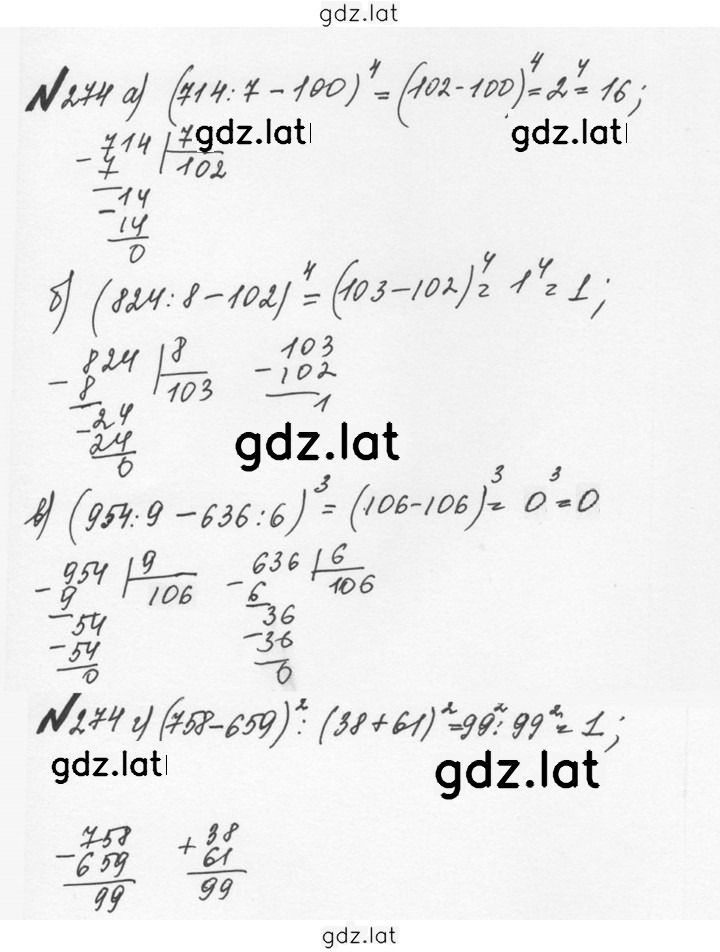 gdz.lat
№274 а) (714:7-100)⁴=(102-100)⁴=2⁴=16;
gdz.lat gdz.lat
-714 |7
7 102
-14
14
0
б) (824:8-102)⁴=(103-102)⁴=1⁴=1;
-824 |8 103
8 103 -102
-24 1
24
0
gdz.lat
в) (954:9-636:6)³=(106-106)³=0³=0
-954 |9 -636 |6
9 106 6 106
-54 36
-54 -36
0 0
№274 г) (758-659)²:(38+61)²=99²:99²=1;
gdz.lat gdz.lat
-758 +38
659 61
99 99
gdz.lat